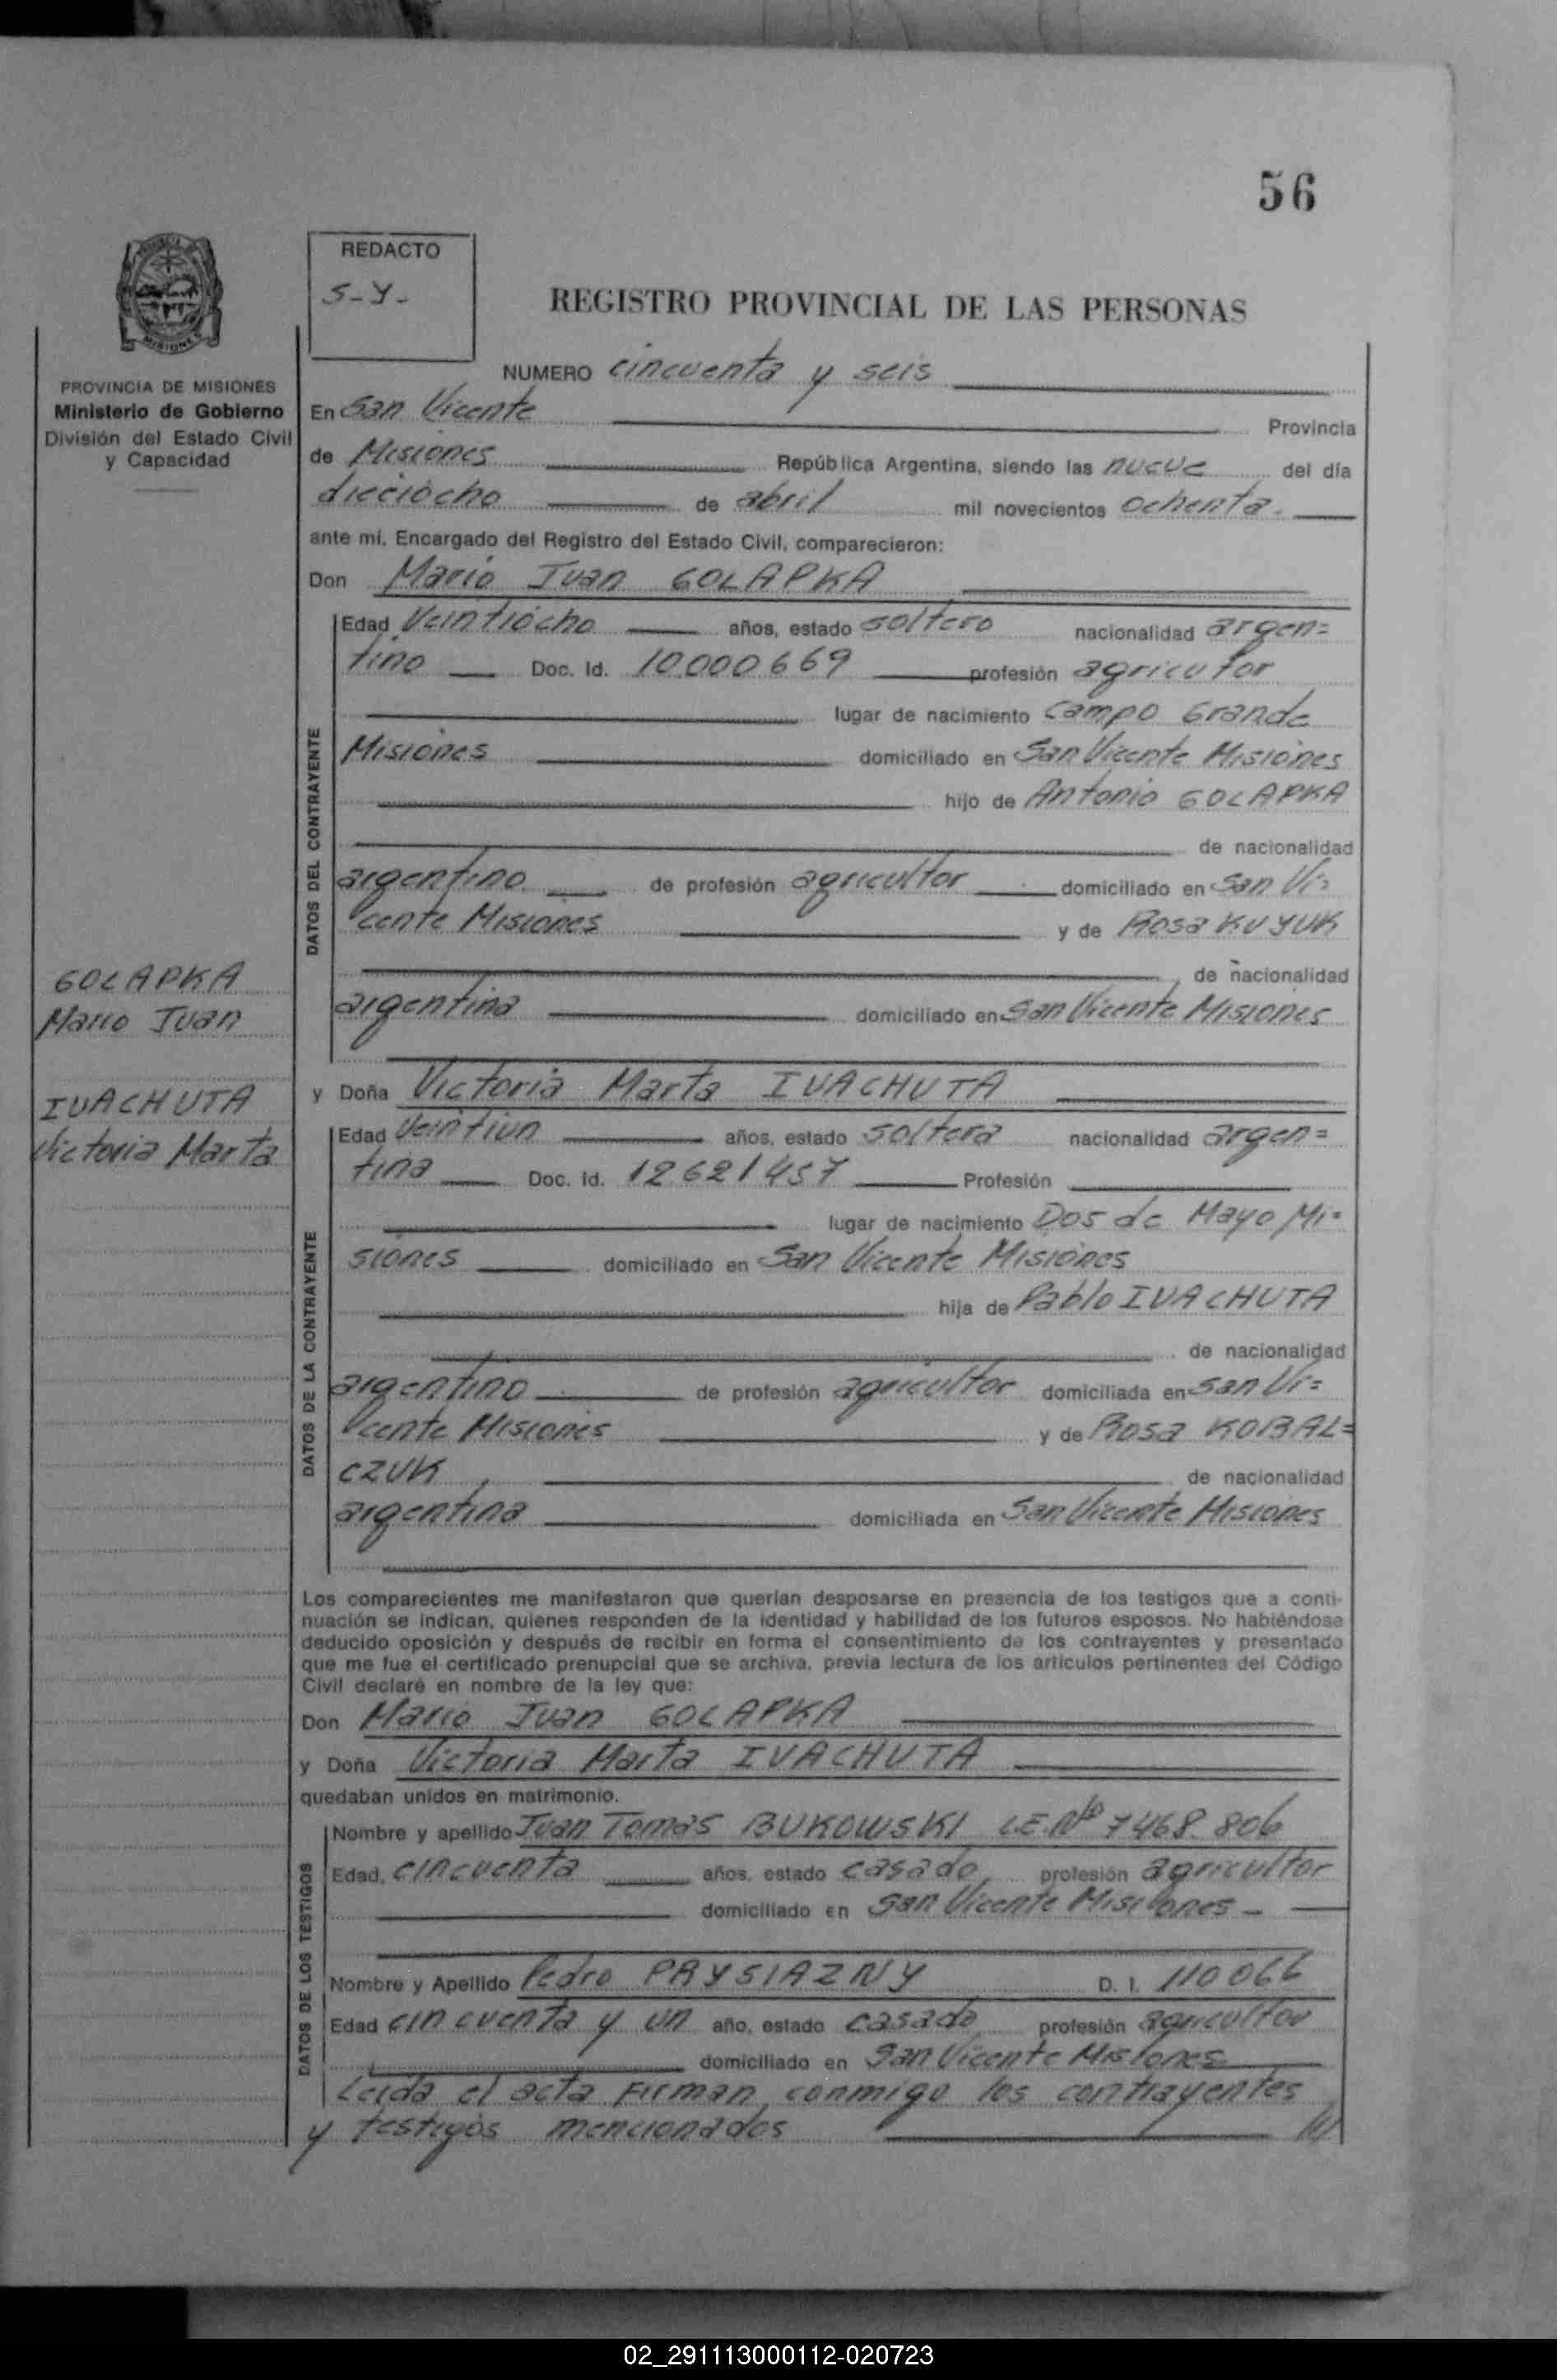 56
REDACTO
S-Y-
REGISTRO PROVINCIAL DE LAS PERSONAS
MISIONES
PROVINCIA DE MISIONES
Ministerio de Gobierno
División del Estado Civil
y Capacidad
NUMERO cincuenta y seis
En San Vicente Provincia
de Misiones República Argentina, siendo las nueve del día
dieciocho de abril mil novecientos ochenta.
ante mí, Encargado del Registro del Estado Civil, comparecieron:
Don Mario Juan GOLAPKA
DATOS DEL CONTRAYENTE
Edad Veintiocho años, estado soltero nacionalidad argen=
tino Doc. Id. 10.000669 profesión agricutor
lugar de nacimiento Campo Grande
Misiones domiciliado en San Vicente Misiones
hijo de Antonio GOLAPKA
de nacionalidad
argentino de profesión agricultor domiciliado en San Vi=
cente Misiones y de Rosa KUYUK
de nacionalidad
argentina domiciliado en San Vicente Misiones
GOLAPKA
Mario Juan
IVACHUTA
Victoria Marta
y Doña Victoria Marta IVACHUTA
DATOS DE LA CONTRAYENTE
Edad Veintiun años, estado soltera nacionalidad argen=
tina Doc. Id. 12.621457 Profesión
lugar de nacimiento Dos de Mayo Mi=
siones domiciliado en San Vicente Misiones
hija de Pablo IVACHUTA
de nacionalidad
argentino de profesión agricultor domiciliada en San Vi=
cente Misiones y de Rosa KOBAL=
CZUK, de nacionalidad
argentina domiciliada en San Vicente Misiones
Los comparecientes me manifestaron que querían desposarse en presencia de los testigos que a conti-
nuación se indican, quienes responden de la identidad y habilidad de los futuros esposos. No habiéndose
deducido oposición y después de recibir en forma el consentimiento de los contrayentes y presentado
que me fue el certificado prenupcial que se archiva, previa lectura de los artículos pertinentes del Código
Civil declaré en nombre de la ley que:
Don Mario Juan GOLAPKA
y Doña Victoria Marta IVACHUTA
quedaban unidos en matrimonio.
DATOS DE LOS TESTIGOS
Nombre y apellido Juan Tomas BUKOWSKI LE.Nº 7468.806
Edad, cincuenta años, estado casado profesión agricultor
domiciliado en San Vicente Misiones -
Nombre y Apellido Pedro PRYSIAZNY D. I. 110066
Edad cincuenta y un año, estado casado profesión agricultor
domiciliado en San Vicente Misiones
Leida el acta Firman conmigo los contrayentes
y testigos mencionados
02_291113000112-020723